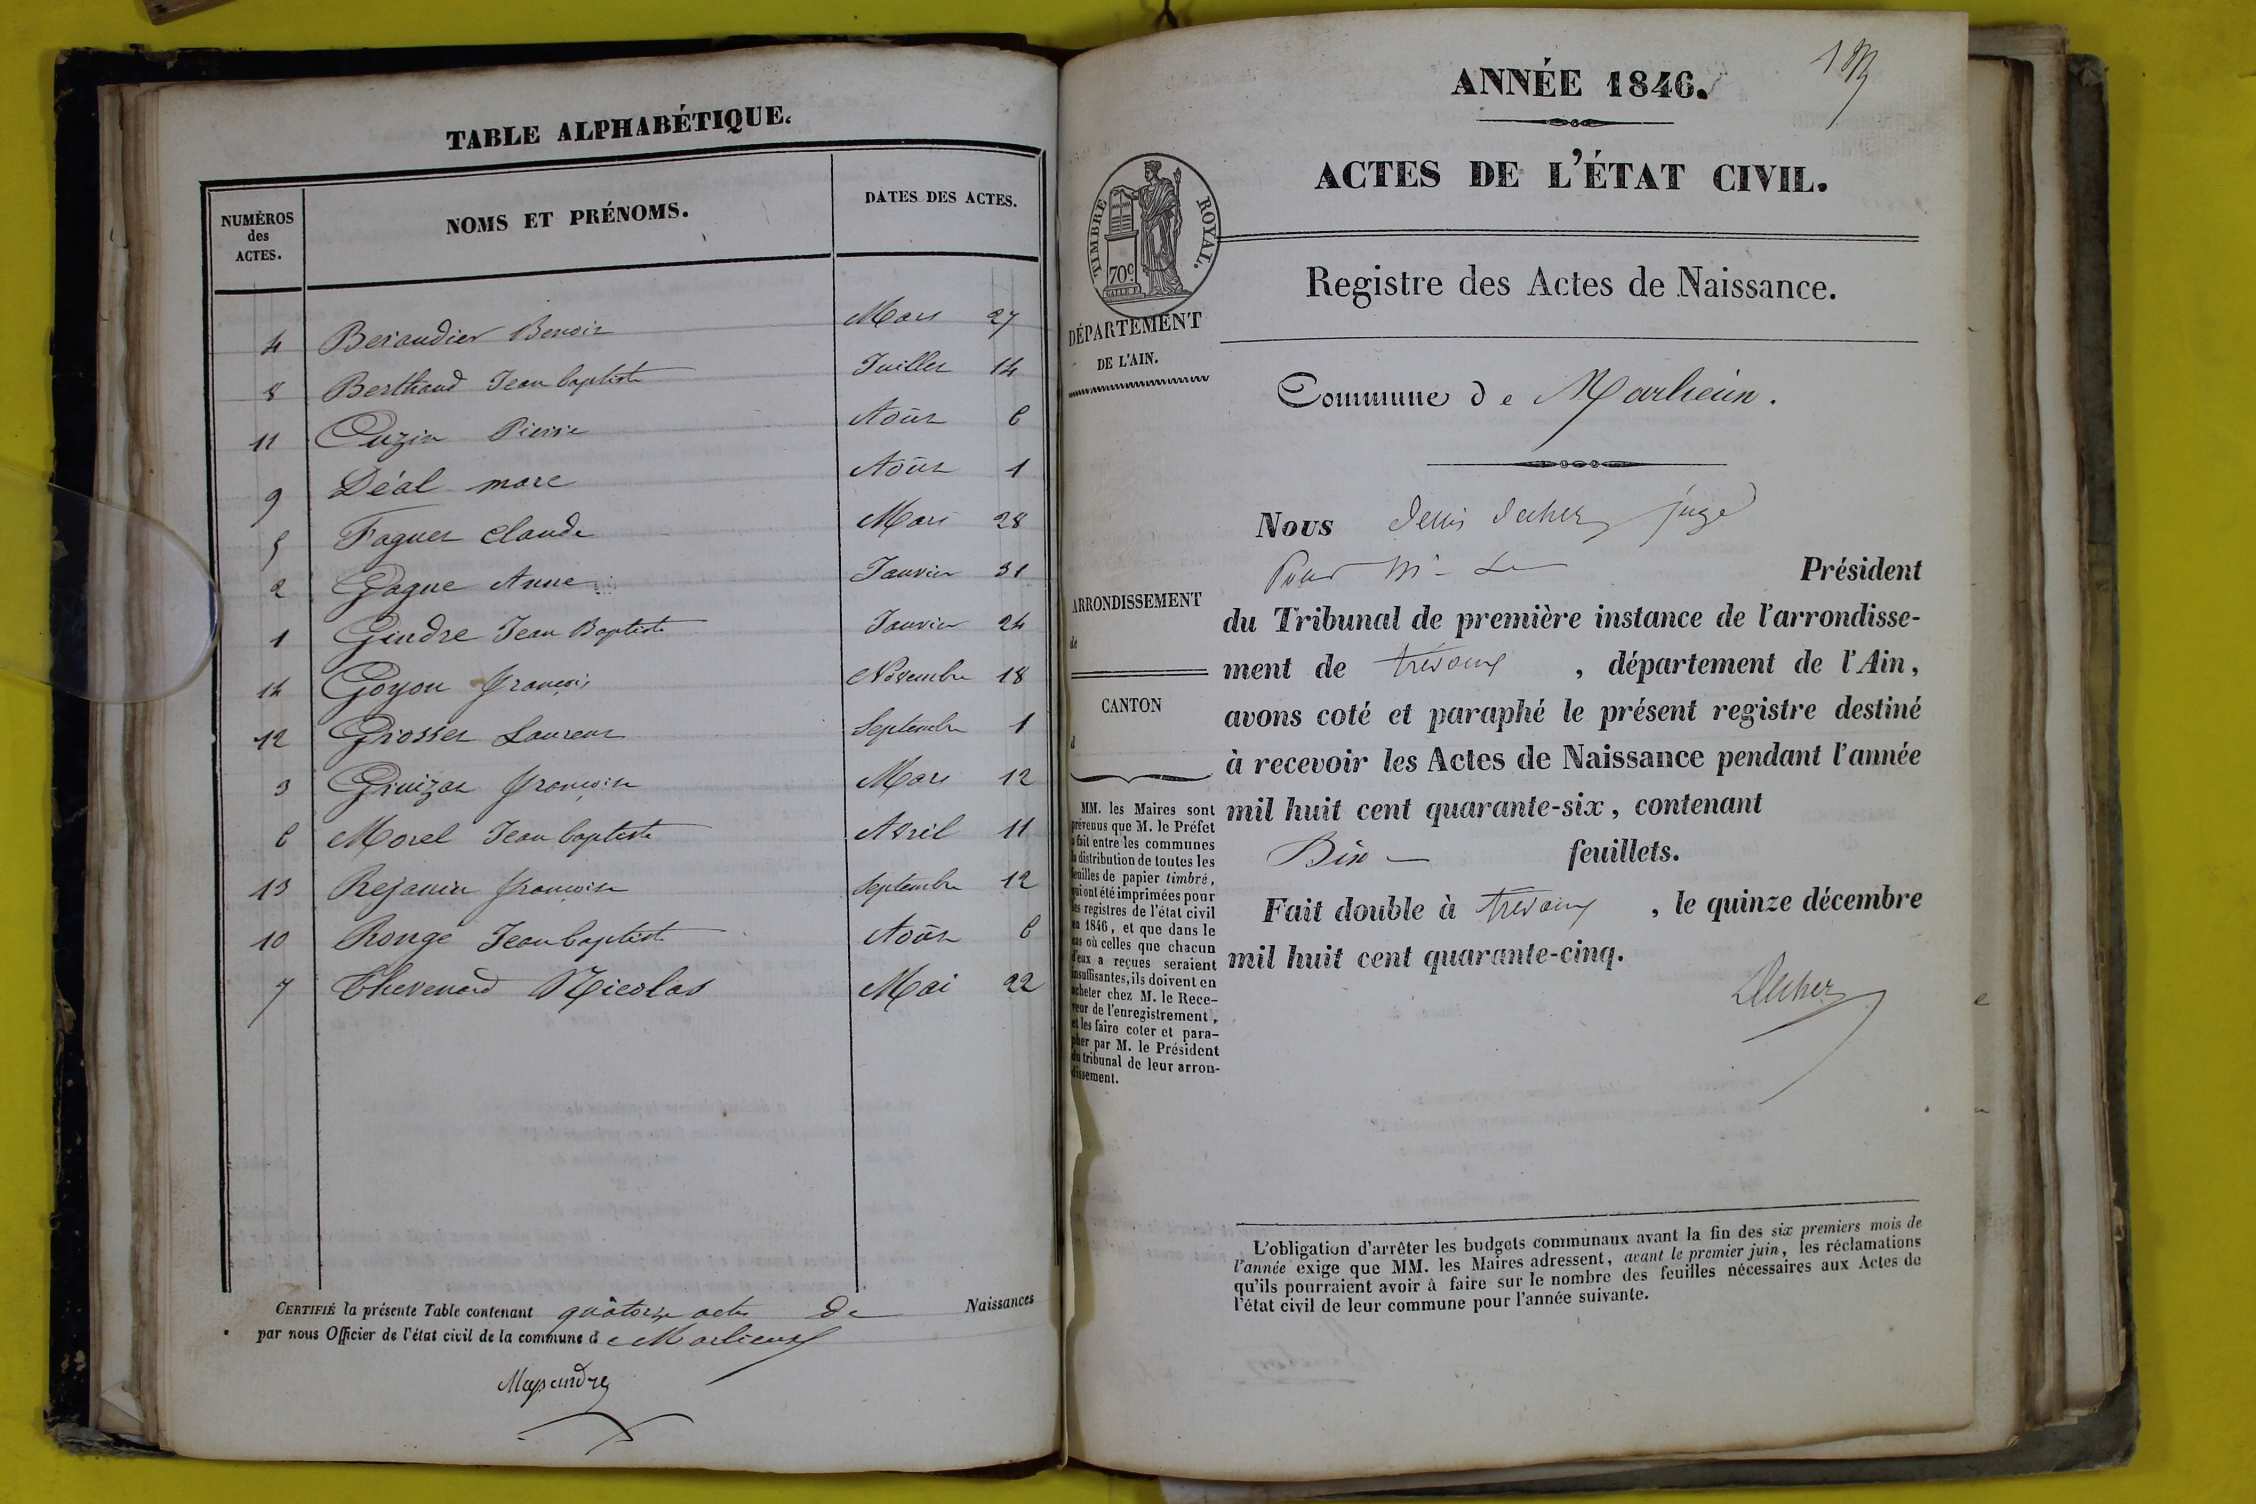 TABLE ALPHABÉTIQUE.
NUMÉROS
des
ACTES.
NOMS ET PRÉNOMS.
DATES DES ACTES.
4 Beraudier Benoit Mars 27
8 Berthaud Jean baptiste Juillet 14
11 Cuzin Pierre Août 6
9 Déal marc Août 1
5 Faguet Claude Mars 28
2 Gagne Anne Janvier 31
1 Gindre Jean Baptiste Janvier 24
14 Goyon françois Novembre 18
12 Grosset Laurent Septembre 1
3 françoise Mars 12
6 Morel Jean baptiste Avril 11
13 Rejanin françoise Septembre 12
10 Rongé Jean baptiste Août 6
7 Thevenard Nicolas Mai 22
CERTIFIÉ la présente Table contenant quâtorze acte de Naissances
par nous Officier de l'état civil de la commune de Marlieux
ANNÉE 1846.
ACTES DE L'ÉTAT CIVIL.
TIMBRE ROYAL.
70c
Registre des Actes de Naissance.
DÉPARTEMENT
DE L'AIN.
Commune de Marlieux.
Nous Denis juge
Pour Mr Le Président
du Tribunal de première instance de l'arrondisse-
ment de trévoux, département de l'Ain,
avons coté et paraphé le présent registre destiné
à recevoir les Actes de Naissance pendant l'année
mil huit cent quarante-six, contenant
Dix feuillets.
Fait double à trevoux, le quinze décembre
mil huit cent quarante-cinq.
ARRONDISSEMENT
de
CANTON
d
MM. les Maires sont
prévenus que M. le Préfet
a fait entre les communes
la distribution de toutes les
feuilles de papier timbré,
qui ont été imprimées pour
les registres de l'état civil
en 1846, et que dans le
cas où celles que chacun
d'eux a reçues seraient
insuffisantes, ils doivent en
acheter chez M. le Rece-
veur de l'enregistrement,
et les faire coter et para-
pher par M. le Président
du tribunal de leur arron-
dissement.
L'obligation d'arrêter les budgets communaux avant la fin des six premiers mois de
l'année exige que MM. les Maires adressent, avant le premier juin, les réclamations
qu'ils pourraient avoir à faire sur le nombre des feuilles nécessaires aux Actes de
l'état civil de leur commune pour l'année suivante.